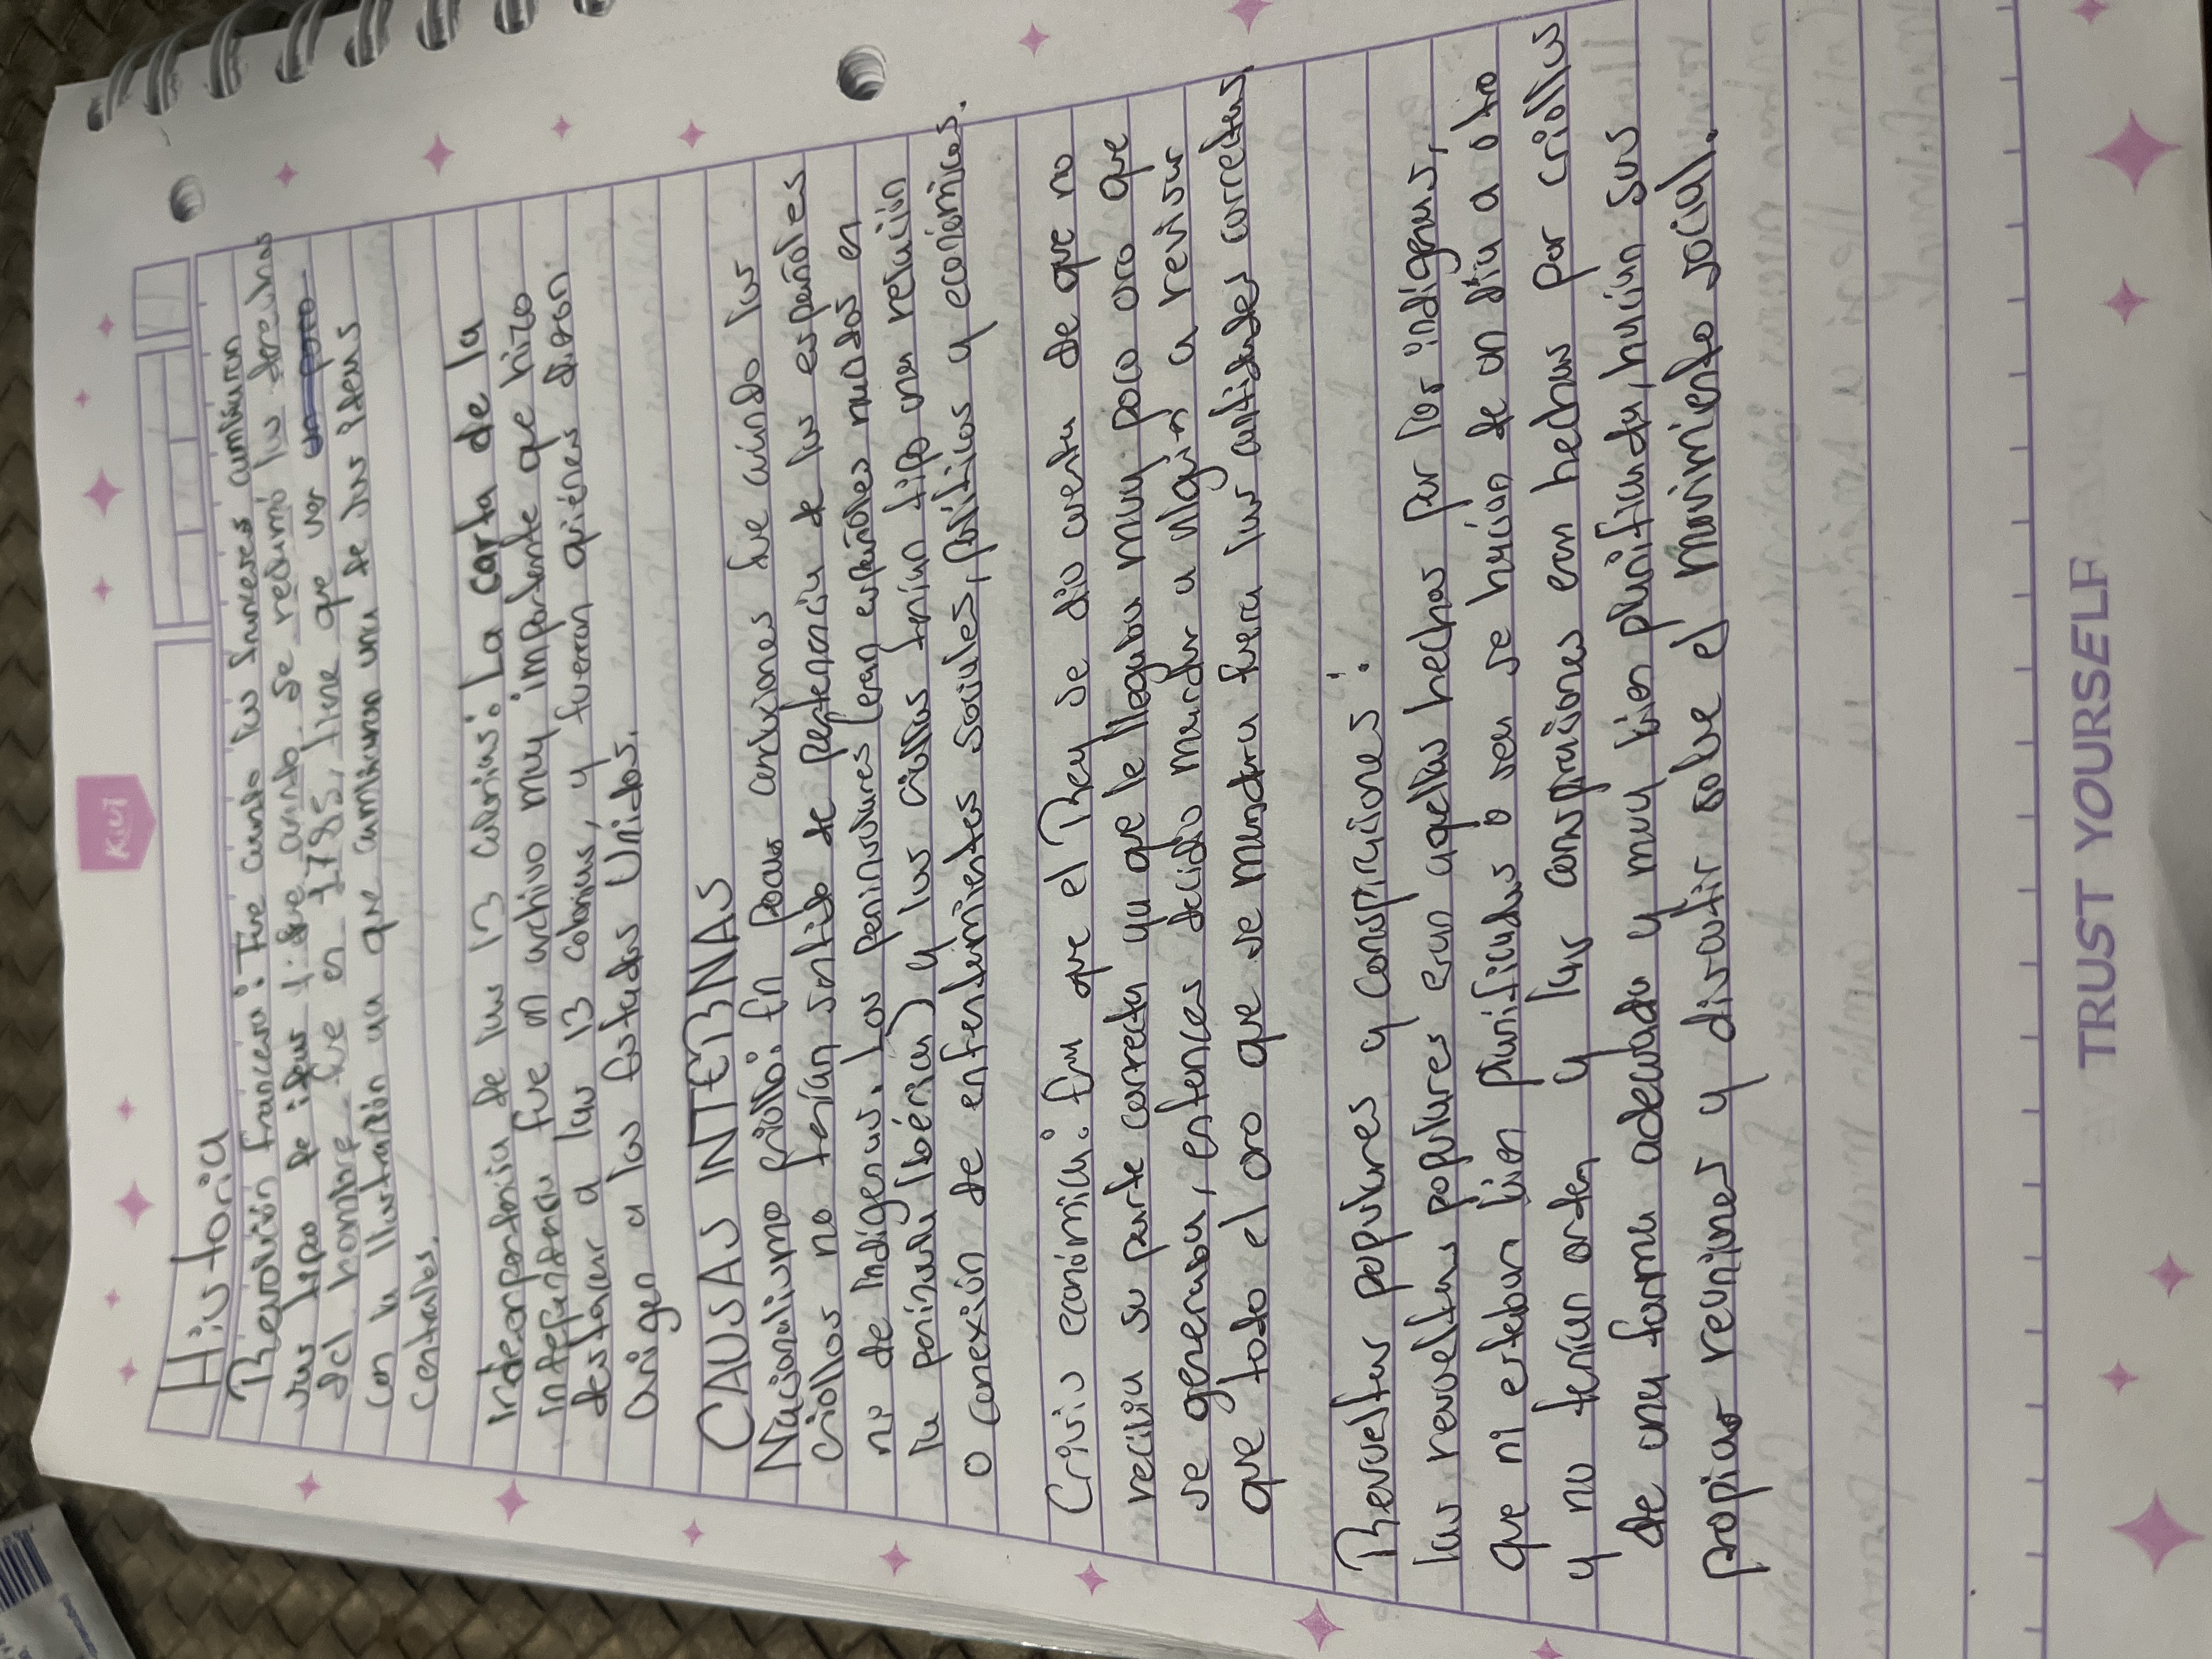 Kiut
Historia
Revolución francesa: Fue cuando los franceses cambiaron
sus tipo de ideas y fue cuando se redamó los derechos
del hombre fue en 1785, tiene que ver un poco
con la Ilustración ya que cambiaron una de sus ideas
centrales.
Independencia de las 13 colonias: La carta de la
independencia fue un archivo muy importante que hizo
destacar a las 13 colonias, y fueron quiénes dieron
origen a los Estados Unidos.
CAUSAS INTERNAS
Nacionalismo criollo: En pocas conclusiones fue cuando los
criollos no tenían sentido de pertenencia de los españoles
ni de indígenas. Los peninsulares (eran españoles nacidos en
la península ibérica) y los criollos tenían tipo una relación
o conexión de enfrentamientos sociales, políticos y económicos.
Crisis económica: Era que el Rey se dio cuenta de que no
recibía su parte correcta ya que le llegaba muy poco oro que
se generaba, entonces decidió mandar a alguien a revisar
que todo el oro que se mandara fuera las cantidades correctas.
Revueltas populares y conspiraciones:
las revueltas populares eran aquellas hechas por los indígenas,
que ni estaban bien planificadas o sea se hacían de un día a otro
y no tenían orden y las conspiraciones eran hechas por criollos
de una forma adecuada y muy bien planificada, hacían sus
propias reuniones y discutir sobre el movimiento social.
TRUST YOURSELF